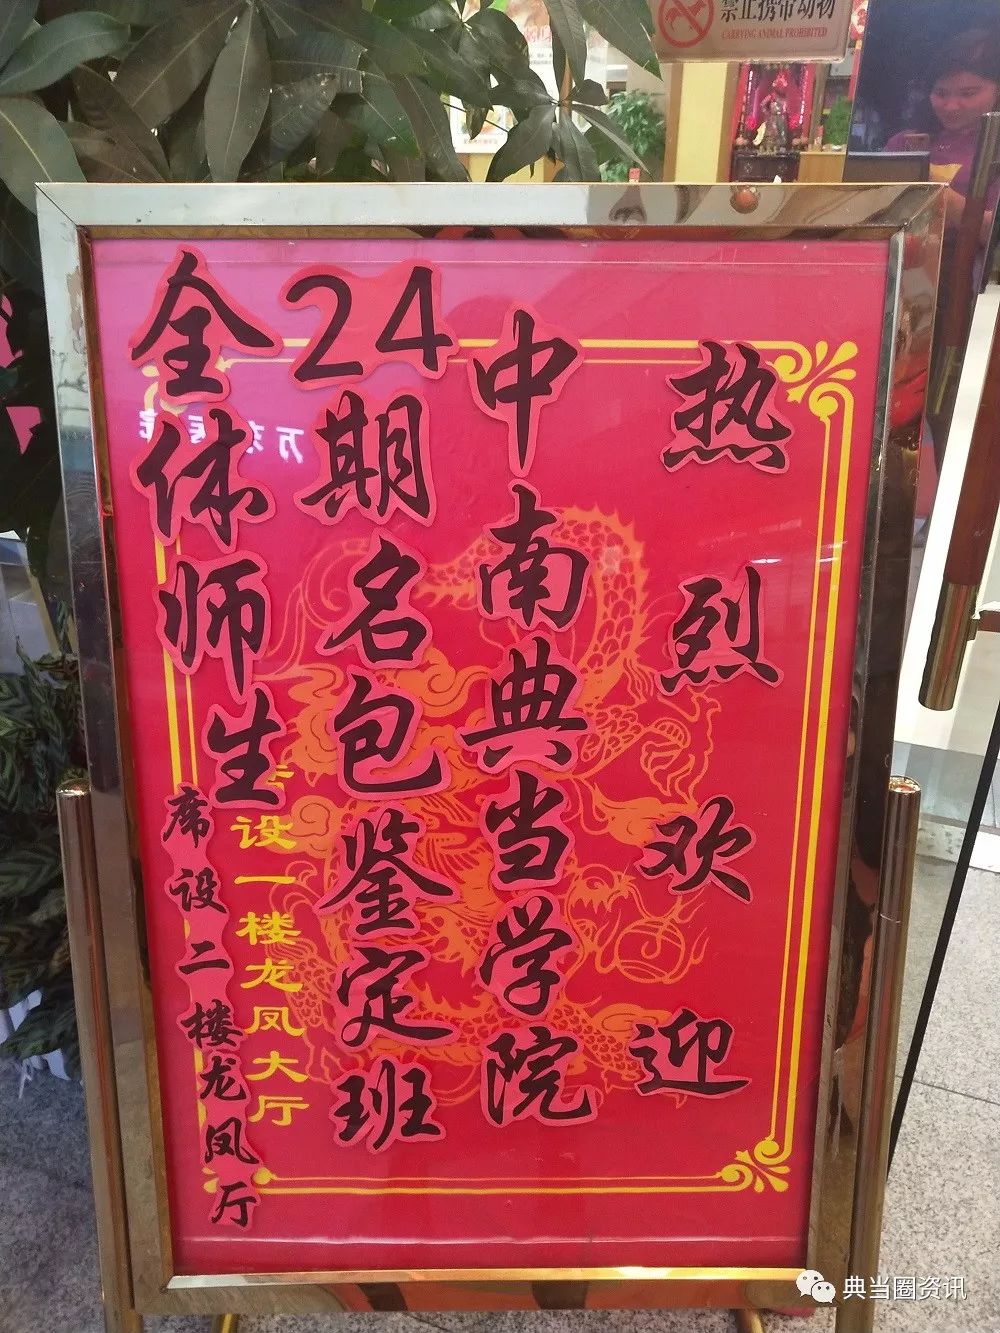 禁止携带动物
CARRYING ANIMAL PROHIBITED
热烈欢迎
中南典当学院
24期名包鉴定班
全体师生
设一楼龙凤大厅
席设二楼龙凤厅
典当圈资讯